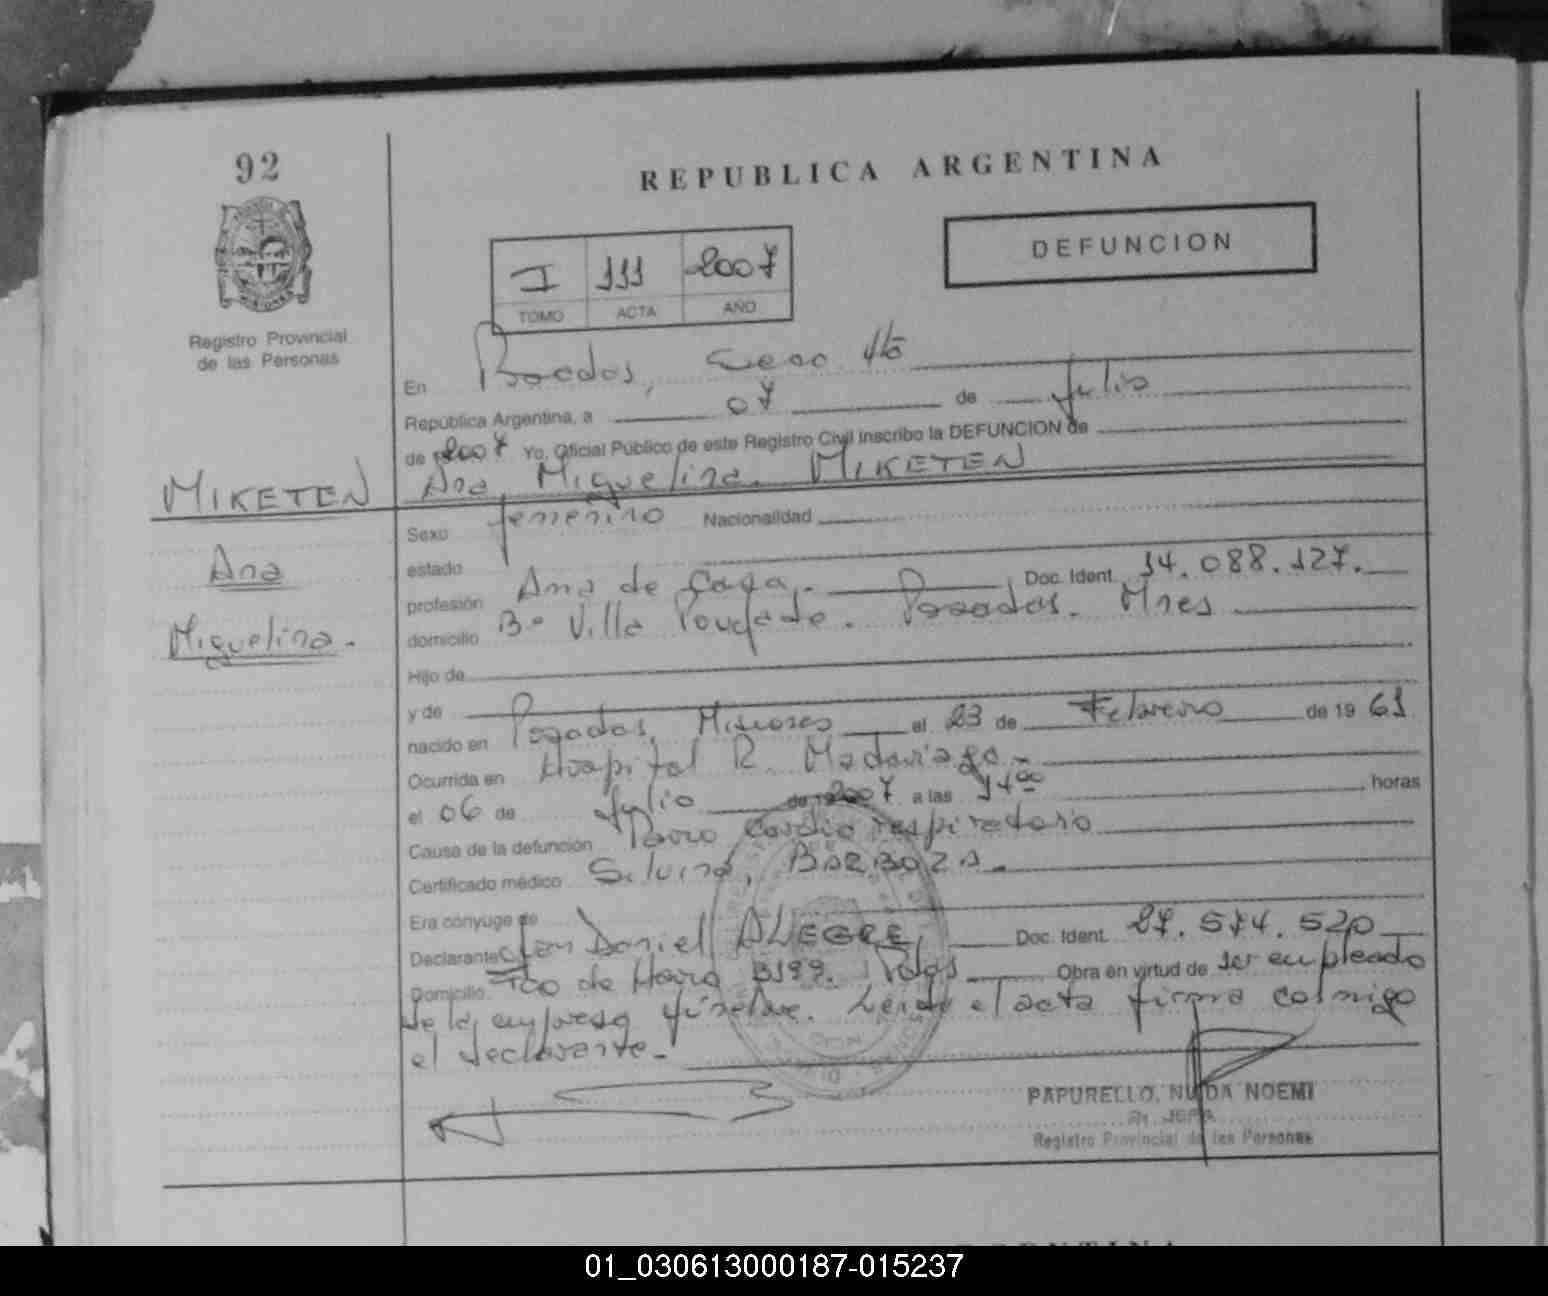 92
REPUBLICA ARGENTINA
DEFUNCION
I 111 2007
TOMO ACTA AÑO
Registro Provincial
de las Personas
En Posadas, Secc. 4ta
República Argentina, a 07 de Julio
de 2007 Yo, Oficial Público de este Registro Civil inscribo la DEFUNCION de
MIKETEN
Ana Miguelina MIKETEN
Ana
Miguelina.-
Sexo femenino Nacionalidad
estado
profesión Ama de Casa.- Doc. Ident. 14.088.127.
domicilio Bº Villa Poujade. Posadas. Mnes
Hijo de
y de
nacido en Posadas, Misiones el 23 de Febrero de 19 61
Ocurrida en Hospital R. Madariaga.-
el 06 de Julio de 2007 a las 14 00 horas
Causa de la defunción Paro Cardio respiratorio
Certificado médico Silvina, BARBOZA.-
Era conyuge de
Declarante Daniel ALEGRE, Doc. Ident. 27.574.520
Domicilio Fco de Haro 3199. Pdas Obra en virtud de ser empleado
de la empresa fúnebre. Leida el acta firma conmigo
el declarante.-
PAPURELLO, NOEMI
JEFA
Registro Provincial de las Personas
01_030613000187-015237